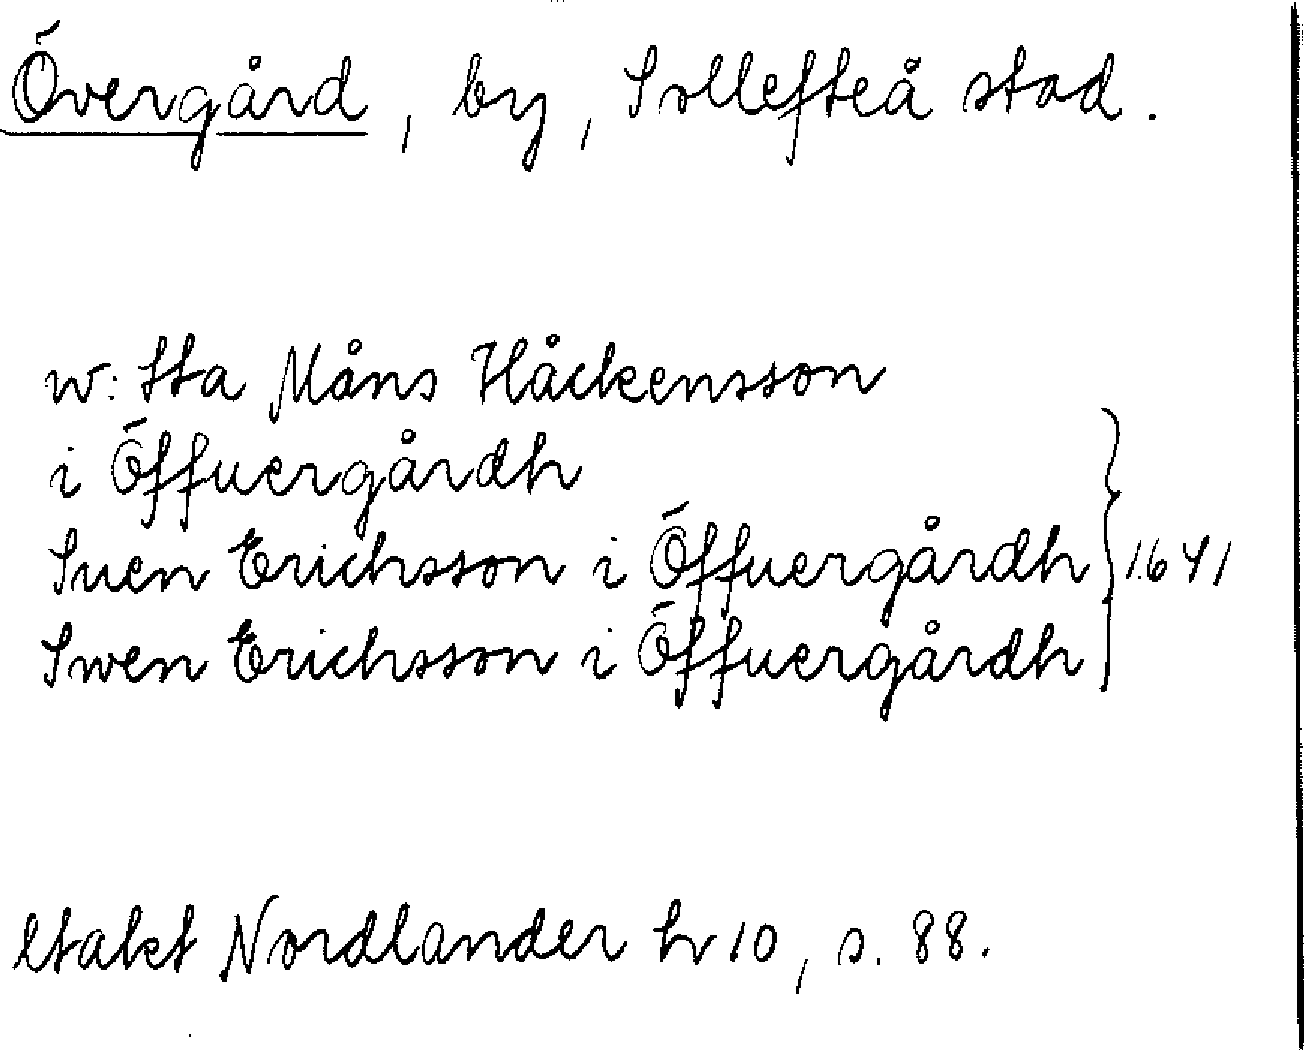 Övergård, by, Sollefteå stad.
w: tta Måns Håckensson
i Öffuergårdh
Suen Erichsson i Öffuergårdh } 1641
Swen Erichsson i Öffuergårdh
Nordlander h 10, s. 88.